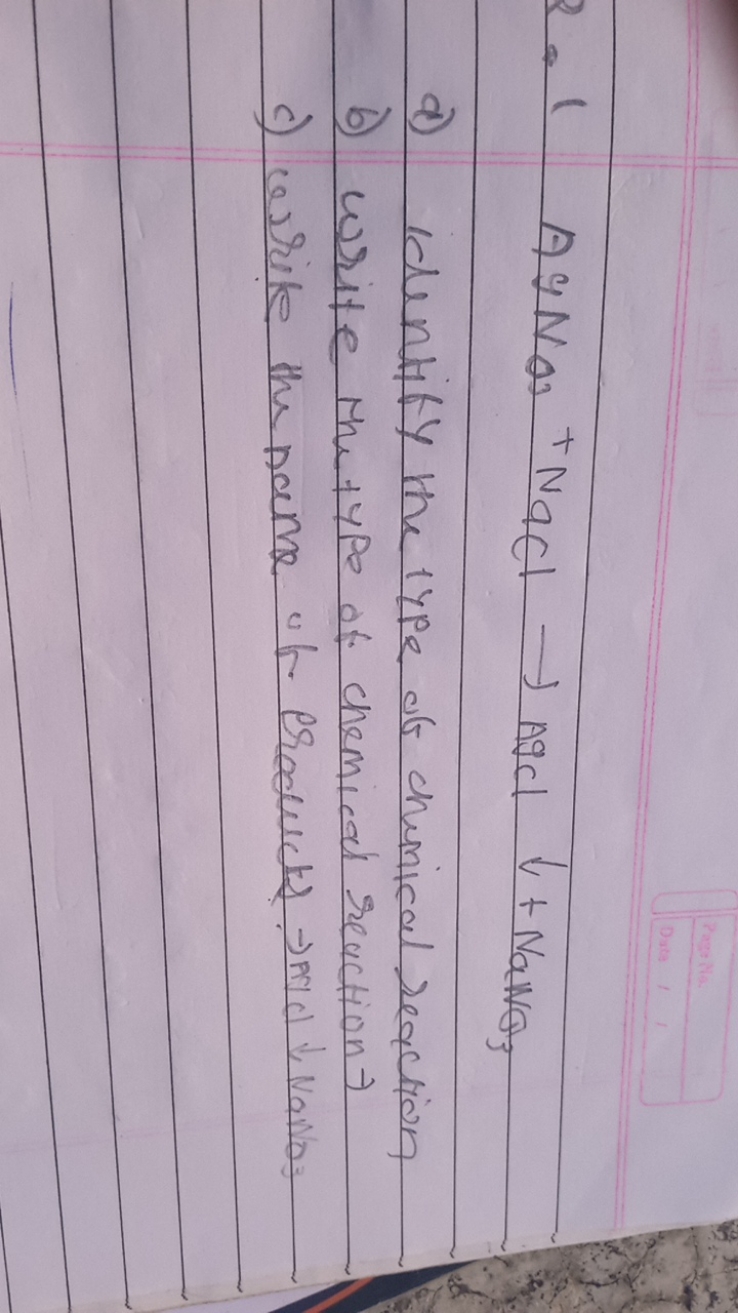 Page No.
Date / /
Q.1 AgNO3 + NaCl → AgCl ↓ + NaNO3
a) identify the type of chemical reaction
b) write the type of chemical reaction →
c) write the name of products → AgCl ↓ NaNO3